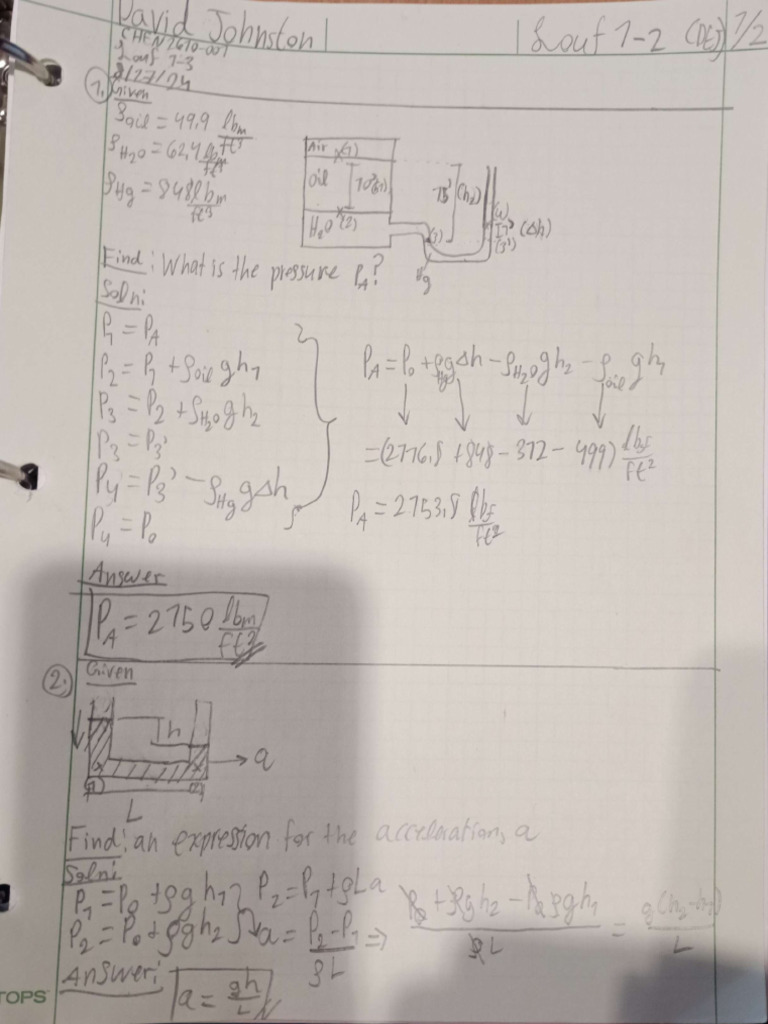 David Johnston
CHEN 2610-001
8/27/24
1.
Given
ρoil = 49,9 lbm/ft³
ρH2O = 62,4 lbm/ft³
ρHg = 848 lbm/ft³
Air x(1)
Oil 10'(h1)
H2O x(2)
(h2)
(4)
1' (Δh)
(3)
(3')
Hg
Find: What is the pressure PA?
Soln:
P1 = PA
P2 = P1 + ρoil gh1
P3 = P2 + ρH2O gh2
P3 = P3'
P4 = P3' - ρHg gΔh
P4 = P0
PA = P0 + ρHg gΔh - ρH2O gh2 - ρoil gh1
= (2776,8 + 848 - 372 - 499) lbf/ft²
PA = 2753,8 lbf/ft²
Answer
PA = 2750 lbm/ft²
2.
Given
h
a
(1) (2)
L
Find: an expression for the acceleration, a
Soln:
P1 = P0 + ρgh1 } P2 = P1 + ρLa
P2 = P0 + ρgh2 } a = (P2 - P1)/ρL ⇒ (P0 + ρgh2 - P0 ρgh1)/ρL = g(h2-h1)/L
Answer: a = gh/L
TOPS